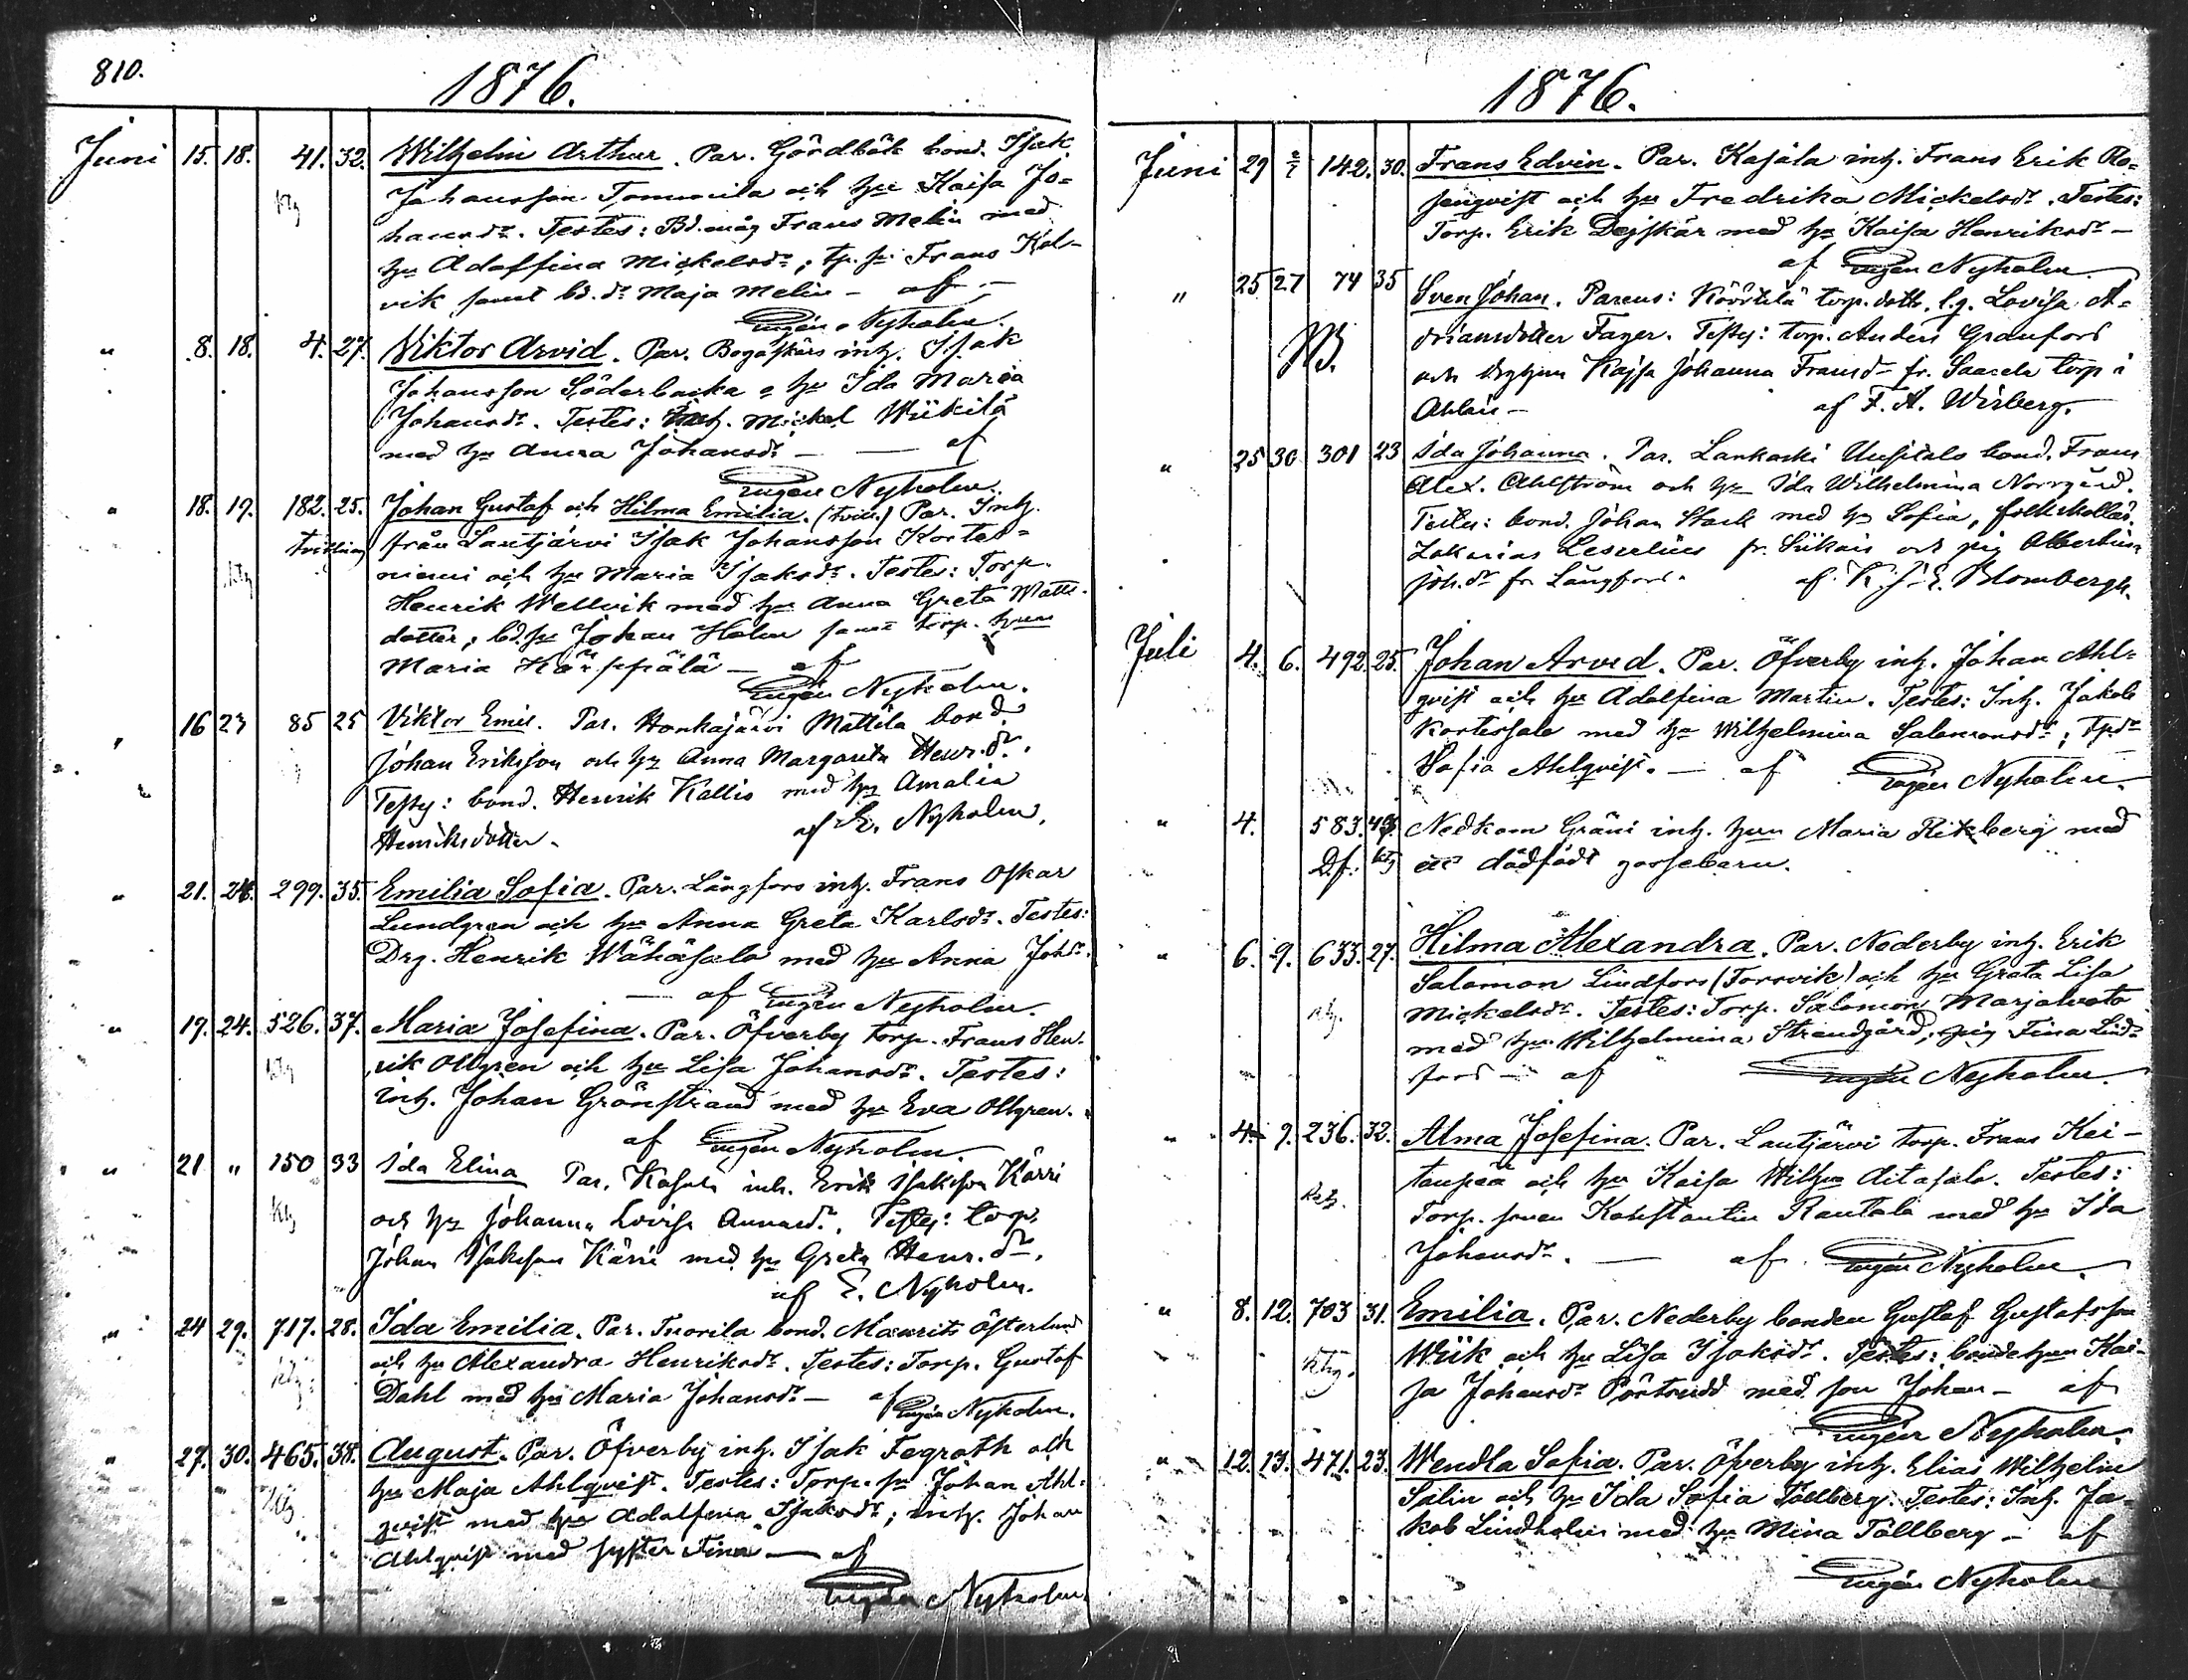 810.
1876.
Juni 15. 18. 41. 32. Wilhelm Arthur. Par. Gårdbäk bond. Isak
Johansson Tommila och hu Kaisa Jo=
hansdr. Testes: Bd.måg Frans Melin med
hu Adolffina Mickelsdr; tp. sr Frans Kol-
vik samt bd.dr Maja Melin - af -
Eugén Nyholm.
" 8. 18. 4. 27. Viktor Arvid. Par. Bogaskärs inh. Isak
Johansson Söderbacka o hu Ida Maria
Johansdr. Testes: Inh. Mickel Wiikilä
med hu Anna Johansdr - — af
Eugén Nyholm.
" 18. 19. 182. 25. Johan Gustaf och Hilma Emilia. (tvill.) Par. Inh.
tvilling från Lautjärvi Isak Johansson Kortes=
niemi och hu Maria Isaksdr. Testes: Torp.
Henrik Wellvik med hu Anna Greta Matts-
dotter; bd.sr Johan Holm samt torp. hun
Maria Kärppälä — af
Eugén Nyholm.
" 16 23 85 25 Viktor Emil. Par. Honkajärvi Mattila bond.
Johan Eriksson och hu Anna Margareta Henr.dr.
Testes: bond. Henrik Kallis med hu Amalia
Henriksdotter. af E. Nyholm.
" 21. 24. 299. 35. Emilia Sofia. Par. Långfors inh. Frans Oskar
Lundgren och hu Anna Greta Karlsdr. Testes:
Drg. Henrik Wähäsalo med hu Anna Johdr.
— af Eugén Nyholm.
" 19. 24. 526. 37. Maria Josefina. Par. Öfverby torp. Frans Hen-
rik Ollgren och hu Lisa Johansdr. Testes:
Inh. Johan Grönstrand med hu Eva Ollgren.
af Eugén Nyholm.
" 21 " 150 33 Ida Elina Par. Kasala inh. Erik Isaksson Kärri
och hu Johanna Lovisa Annasdr. Testes: torp.
Johan Isaksson Kärri med hu Greta Henr.dr.
af E. Nyholm.
" 24 29. 717. 28. Ida Emilia. Par. Tuorila bond. Maurits Österlund
och hu Alexandra Henriksdr. Testes: Torp. Gustaf
Dahl med hu Maria Johansdr — af Eugén Nyholm.
" 27. 30. 465. 38. August. Par. Öfverby inh. Isak Fegroth och
hu Maja Ahlqvist. Testes: Torp. sr Johan Ahl=
qvist med hu Adolfina Isaksdr; inh. Johan
Ahlqvist med syster Tina — af
Eugén Nyholm.
1876.
Juni 29 2/7 142. 30. Frans Edvin. Par. Kasala inh. Frans Erik Ro=
senqvist och hu Fredrika Mickelsdr. Testes:
Torp. Erik Dejskär med hu Kaisa Henriksdr —
af Eugén Nyholm.
" 25 27 74 35 Sven Johan. Parens: Köörtilä torp. dottr. l.g. Lovisa A=
driansdotter Fager. Testes: torp. Anders Granfors
och Kajsa Johanna Fransdr fr. Saarela torp i
Ahlais — af F. A. Wirberg.
" 25 30 301 23 Ida Johanna. Par. Lankoski Uusitalo bond. Frans
Alex. Ahlström och hu Ida Wilhelmina Norrgård.
Testes: bond. Johan Stark med hu Sofia, folkskollär.
Zakarias Leselius fr. Siikais och pig. Albertina
Joh.dr fr. Långfors. af K. J. E. Blombergh.
Juli 4. 6. 492. 25. Johan Arvid. Par. Öfverby inh. Johan Ahl=
qvist och hu Adolfina Martin. Testes: Inh. Jakob
Kortessalo med hu Wilhelmina Salomonsdr; Tpdr
Sofia Ahlqvist. — af Eugén Nyholm.
" 4. 583. 43. Nedkom Gräni inh. hun Maria Flikberg med
Df. ett dödfödt gossebarn.
" 6. 9. 633. 27. Hilma Alexandra. Par. Nederby inh. Erik
Salomon Lindfors (Torsvik) och hu Greta Lisa
Mickelsdr. Testes: Torp. Salomon Marjaluoto
med hu Wilhelmina Strandgård; pig Fina Lind-
fors — af Eugén Nyholm.
" 4. 9. 236. 32. Alma Josefina. Par. Lautjärvi torp. Frans Kei-
tanpää och hu Kaisa Wilhna Aitasalo. Testes:
Torp. sonen Konstantin Rantala med hu Ida
Johansdr. — af Eugén Nyholm.
" 8. 12. 703 31. Emilia. Par. Nederby bonden Gustaf Gustafsson
Wiik och hu Lisa Isaksdr. Testes: bondehun Kai-
sa Johansdr Pörtsudd med son Johan — af
Eugén Nyholm.
" 12. 13. 471. 23. Wendla Sofia. Par. Öfverby inh. Elias Wilhelm
Salin och hu Ida Sofia Tollberg. Testes: Inh. Ja-
kob Lindholm med hu Mina Tållberg — af
Eugén Nyholm